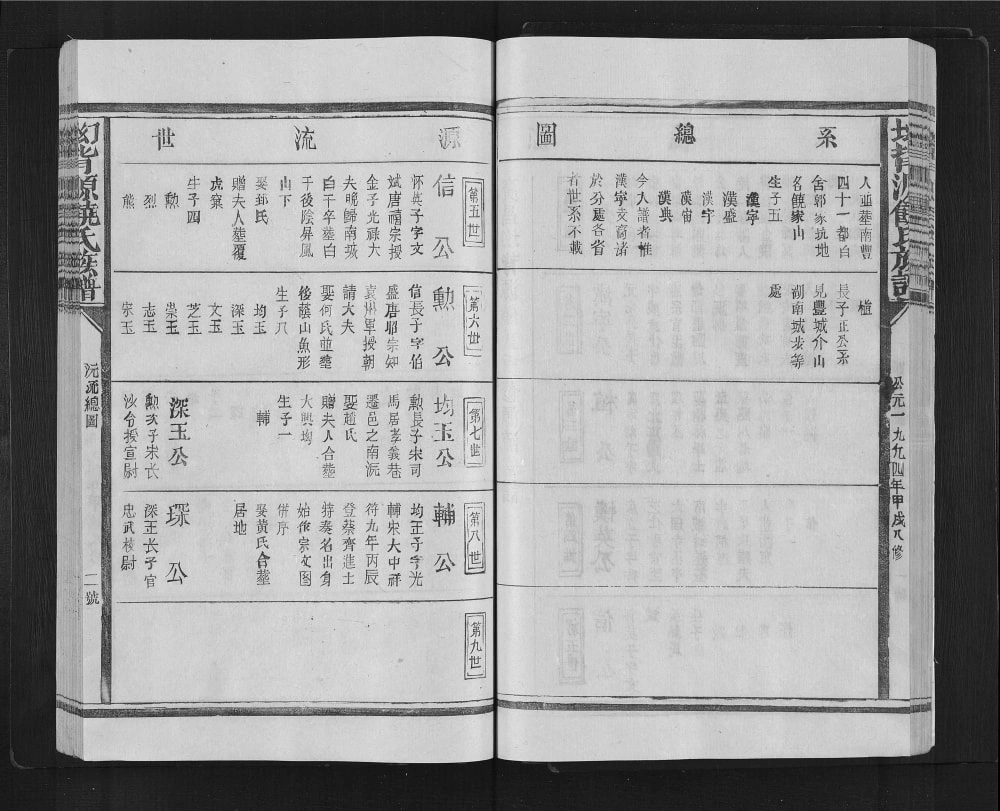 系總圖
人亚葬南豐
四十一都白
舍郭家坑地
名饒家山
生子五
漢寧
漢盛
漢字
漢宙
漢典
今入譜者惟
漢寧支裔諸
於分處各省
者世系不載
植
長子正公系
見豐城介山
湖南城步等
處
公元一九九四年甲戌八修
源流世
第五世
信公
怀英子字文
斌唐禧宗授
金子光祿大
夫晚歸南城
白干卒葬白
干後陰屏風
山下
娶鄧氏
贈夫人葬覆
虎窠
生子四
勲
烈
熊
第六世
勲公
信長子字伯
盛唐昭宗知
袁州軍授朝
請大夫
娶何氏並葬
後蔭山魚形
生子八
均玉
深玉
文玉
芝玉
崇玉
志玉
宗玉
第七世
均玉公
勲長子宋司
馬居孝義巷
遷邑之南沅
娶趙氏
贈夫人合葬
大興均
生子一
輔
深玉公
勲次子宋长
沙台授宣尉
第八世
輔公
均玉子字光
輔宋大中祥
符九年丙辰
登蔡齊進士
特奏名出身
始修宗文图
併序
娶黄氏合葬
居地
琛公
深玉长子官
忠武校尉
第九世
源饒氏族譜
沅流總圖
二號